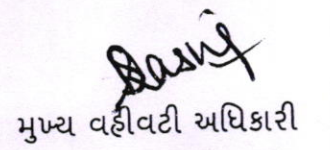 મુખ્ય વહીવટી અધિકારી